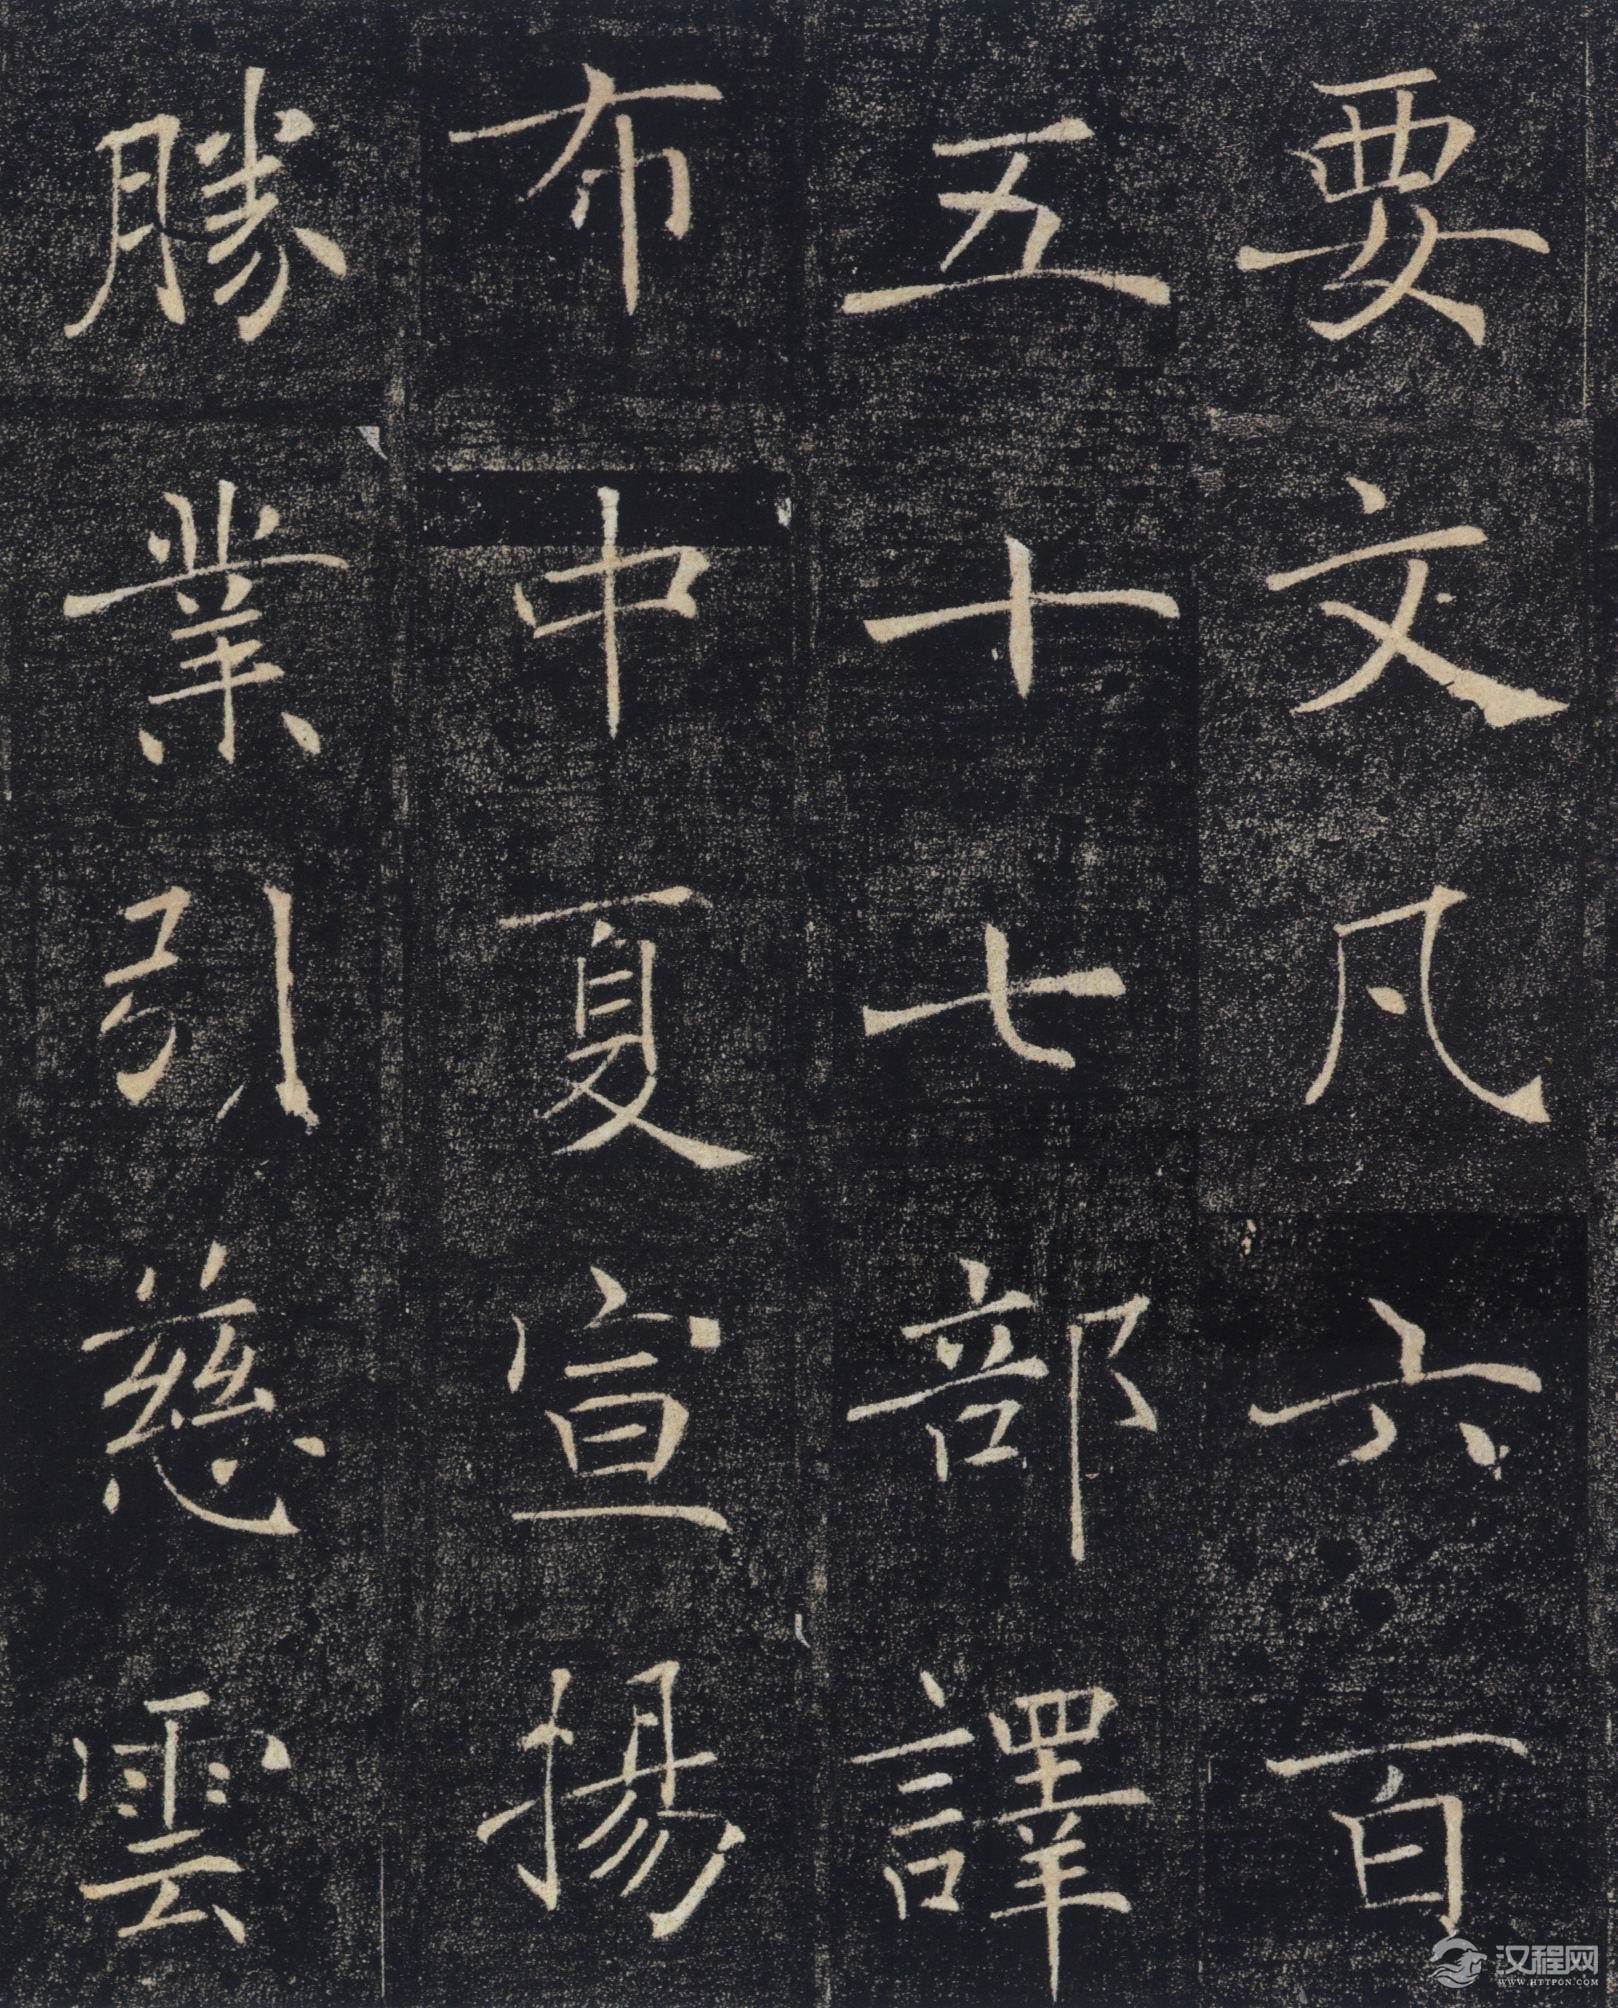 要文凡六百
五十七部譯
布中夏宣揚
勝業引慈雲
汉程网
WWW.HTTPCN.COM